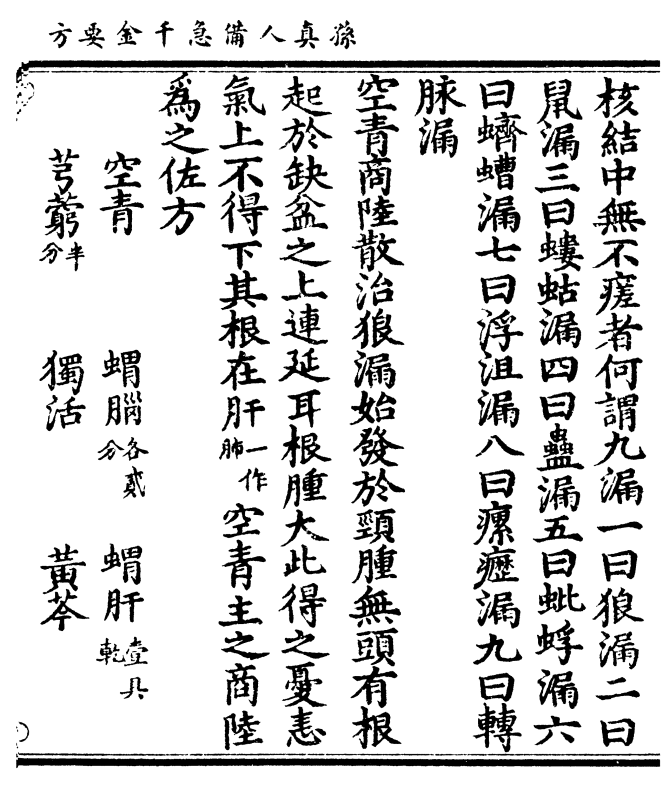 孫真人備急千金要方
核結中無不瘥者何謂九漏一曰狼漏二曰
鼠漏三曰螻蛄漏四曰蠱漏五曰蚍蜉漏六
曰蠐螬漏七曰浮沮漏八曰瘰癧漏九曰轉
脉漏
空青商陸散治狼漏始發於頸腫無頭有根
起於缺盆之上連延耳根腫大此得之憂恚
氣上不得下其根在肝一作肺空青主之商陸
爲之佐方
空青 蝟腦各貳分 蝟肝壹具乾
芎藭半分 獨活 黃芩